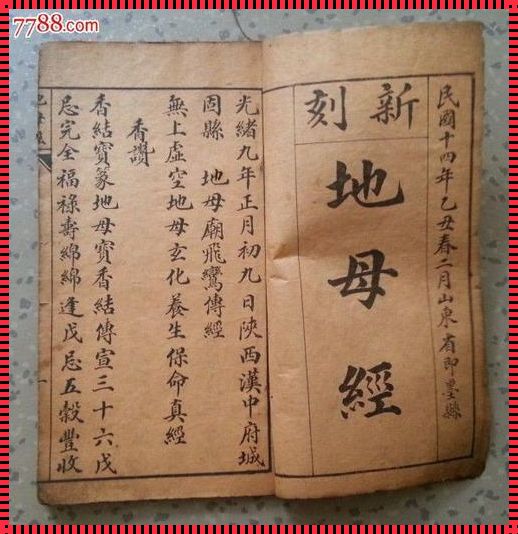 7788.com
民國十四年乙丑春二月山東省即墨縣
新刻
地母經
光緒九年正月初九日陝西漢中府城
固縣 地母廟飛鸞傳經
無上虛空地母玄化養生保命真經
香讚
香結寶篆地母寶香結傳宣三十六戊
忌完全福祿壽綿綿逢戊忌五穀豐收